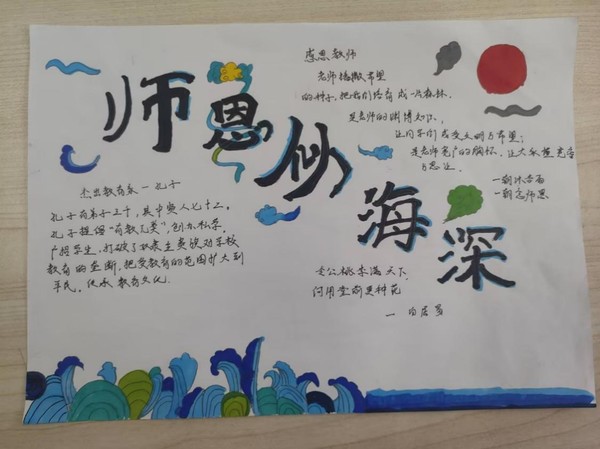 师恩似海深
感恩教师
老师播撒希望
的种子,把我们培育成一片森林.
是老师的渊博知识.
让同学们感受文明与希望;
是老师宽广的胸怀,让大家
与
一朝沐杏雨
一朝念师恩
杰出教育家一孔子
孔子有弟子三千,其中贤人七十二。
孔子提倡"有教无类",创办私学,
广招学生,打破了奴隶主贵族对学校
教育的垄断,把受教育的范围扩大到
平民,传承教育文化.
令公桃李满天下.
何用堂前更种花
一 白居易